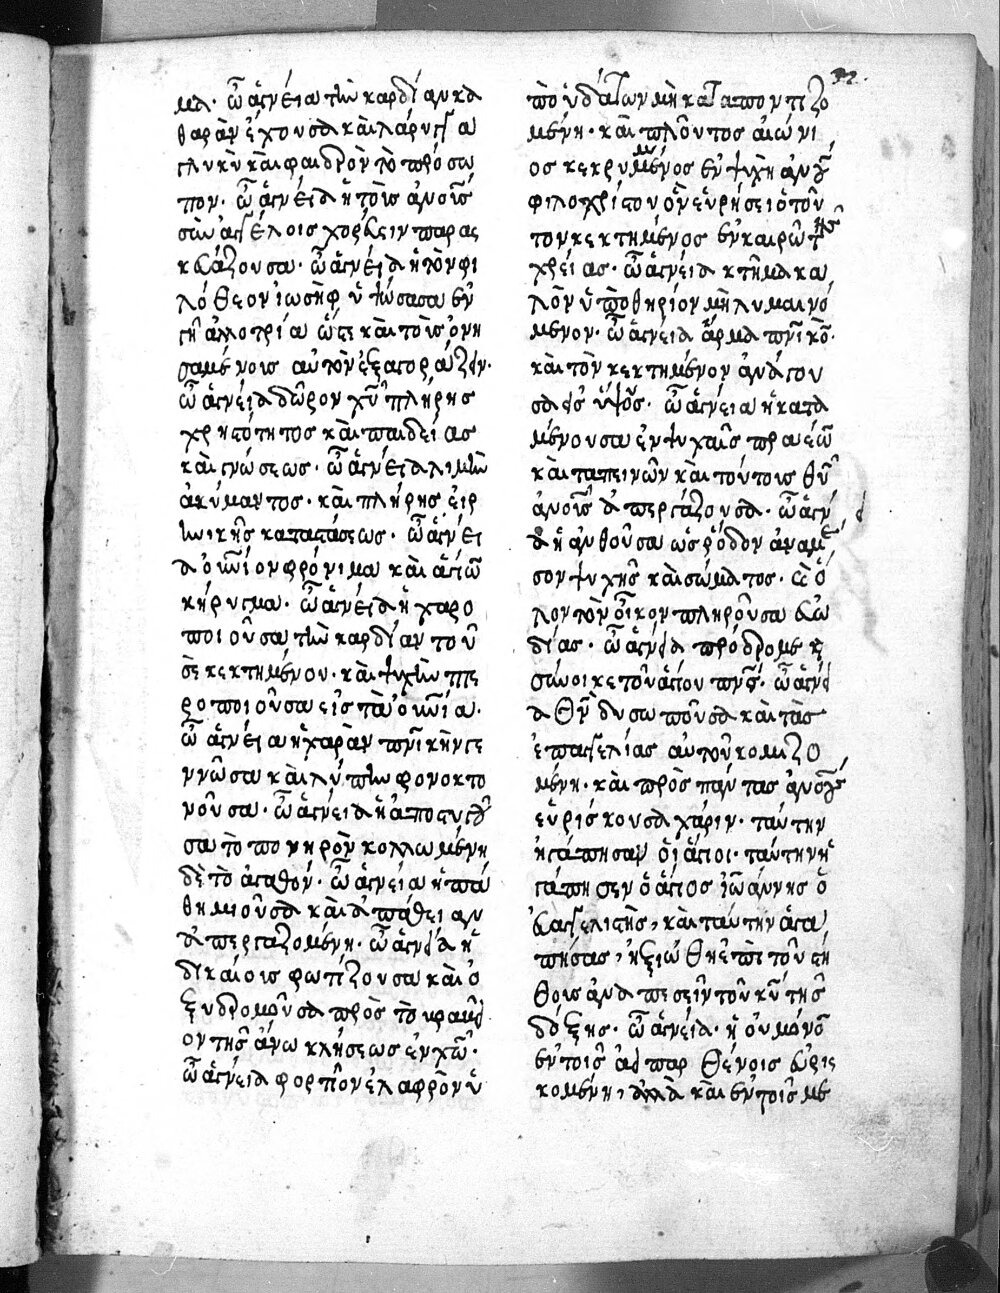 32.
μα· ὦ ἁγνεία τὴν καρδίαν κα
θαρὰν ἔχουσα καὶ λάρυγγα
γλυκὺν καὶ φαιδρὸν τὸ πρόσω
πον· ὦ ἁγνεία ἡ τοῖς ἀνοις
σὺν ἀγγέλοις χορεύειν παρασ
κευάζουσα· ὦ ἁγνεία ἡ τὸν φι
λόθεον ἰωσὴφ ὑψώσασα ἐν
γῆ ἀλλοτρία ὥστε καὶ τοῖς ὀνη
σαμένοις αὐτὸν ἐξαγοράζειν·
ὦ ἁγνεία δῶρον χυ πλήρης
χρηστότητος καὶ παιδείας
καὶ γνώσεως· ὦ ἁγνεία λιμὴν
ἀκύμαντος· καὶ πλήρης εἰρ
ηνικῆς καταστάσεως· ὦ ἁγνεί
α φρόνιμα καὶ ἁγίων
κήρυγμα· ὦ ἁγνεία ἡ χαρο
ποιοῦσα τὴν καρδίαν τοῦ
σὲ κεκτημένου· καὶ ψυχὴν πτε
ροποιοῦσα εἰς τὰ οὐνια·
ὦ ἁγνεία ἡ χαρὰν πνικὴν γε
ννῶσα καὶ λύπην φονοκτο
νοῦσα· ὦ ἁγνεία ἡ ἀποστυγοῦ
σα τὸ πονηρὸν κολλωμένη
δὲ τὸ ἀγαθόν· ὦ ἁγνεία ἡ πά
θη μιοῦσα καὶ ἀπάθειαν
ἀπεργαζομένη· ὦ ἁγνεία ἡ
δικαίοις φωτίζουσα καὶ ὀ
ξυδρομοῦσα πρὸς τὸ βραβεῖ
ον τῆς ἄνω κλήσεως ἐν χω·
ὦ ἁγνεία φορτίον ἐλαφρὸν ὑ
πὸ ὑδάτων μὴ καταποντιζο
μένη· καὶ πλοῦτος αἰώνι
ος κεκρυμμένος ἐν ψυχῆ ἀνου
φιλοχρίστου ὃν εὑρήσει ὁ τοῦ
τον κεκτημένος ἐν καιρῶ τῆς
χρείας· ὦ ἁγνεία κτῆμα κα
λὸν ὑπὸ θηρίου μὴ λυμαινό
μενον· ὦ ἁγνεία ἅρμα πνικὸν·
καὶ τὸν κεκτημένον ἀνάγου
σα εἰς ὕψος· ὦ ἁγνεία ἡ καταπ
μένουσα ἐν ψυχαῖς πραέων
καὶ ταπεινῶν καὶ τούτοις θυ
ἀνοις ἀπεργάζουσα· ὦ ἁγνεί
α ἡ ἀνθοῦσα ὡς ῥόδον ἀναμέ
σον ψυχῆς καὶ σώματος· καὶ ὅ
λον τὸν οἶκον πληροῦσα εὐω
δίας· ὦ ἁγνεία πρόδρομε καὶ
σύνοικε τοῦ ἁγίου πνς· ὦ ἁγνεί
α θν δυσωποῦσα καὶ τὰς
ἐπαγγελίας αὐτοῦ κομιζο
μένη· καὶ πρὸς πάντας ἀνους
εὑρίσκουσα χάριν· ταύτην
ἠγάπησαν οἱ ἅγιοι· ταύτην ἠ
γάπησεν ὁ ἅγιος ἰωάννης ὁ
εὐαγγελιστὴς, καὶ ταύτην ἀγα
πήσας, ἠξιώθη ἐπὶ τοῦ στή
θους ἀναπεσεῖν τοῦ κυ τῆς
δόξης· ὦ ἁγνεία· ἡ οὐ μόνον
ἐν τοῖς ἀειπαρθένοις εὑρισ
κομένη, ἀλλὰ καὶ ἐν τοῖς με